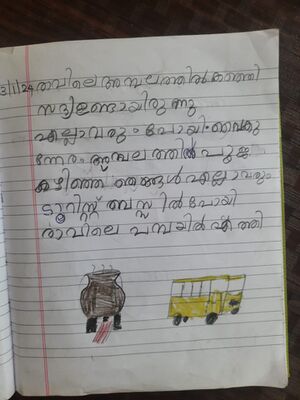 3/1/24 രാവിലെ അമ്പലത്തിൽ കഞ്ഞി
സദ്യഉണ്ടായിരുന്നു
എല്ലാവരും പോയി. വൈകു
ന്നേരം അമ്പലത്തിൽ പൂജ
കഴിഞ്ഞ് ഞങ്ങൾ എല്ലാവരും
ടൂറിസ്റ്റ് ബസ്സിൽ പോയി
രാവിലെ പമ്പയിൽ എത്തി